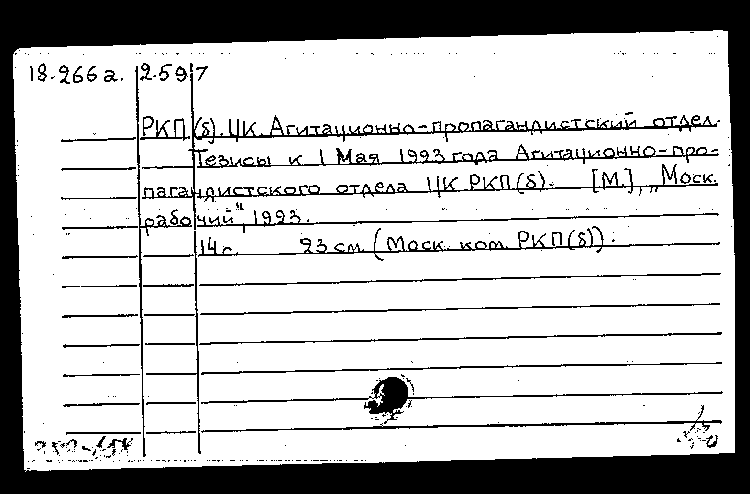 18-266а. 2-597
РКП(б). ЦК. Агитационно-пропагандистский отдел.
Тезисы к 1 Мая 1923 года Агитационно-про-
пагандистского отдела ЦК РКП(б). [М.], „Моск.
рабочий", 1923.
14 с. 23 см. (Моск. ком. РКП(б)).